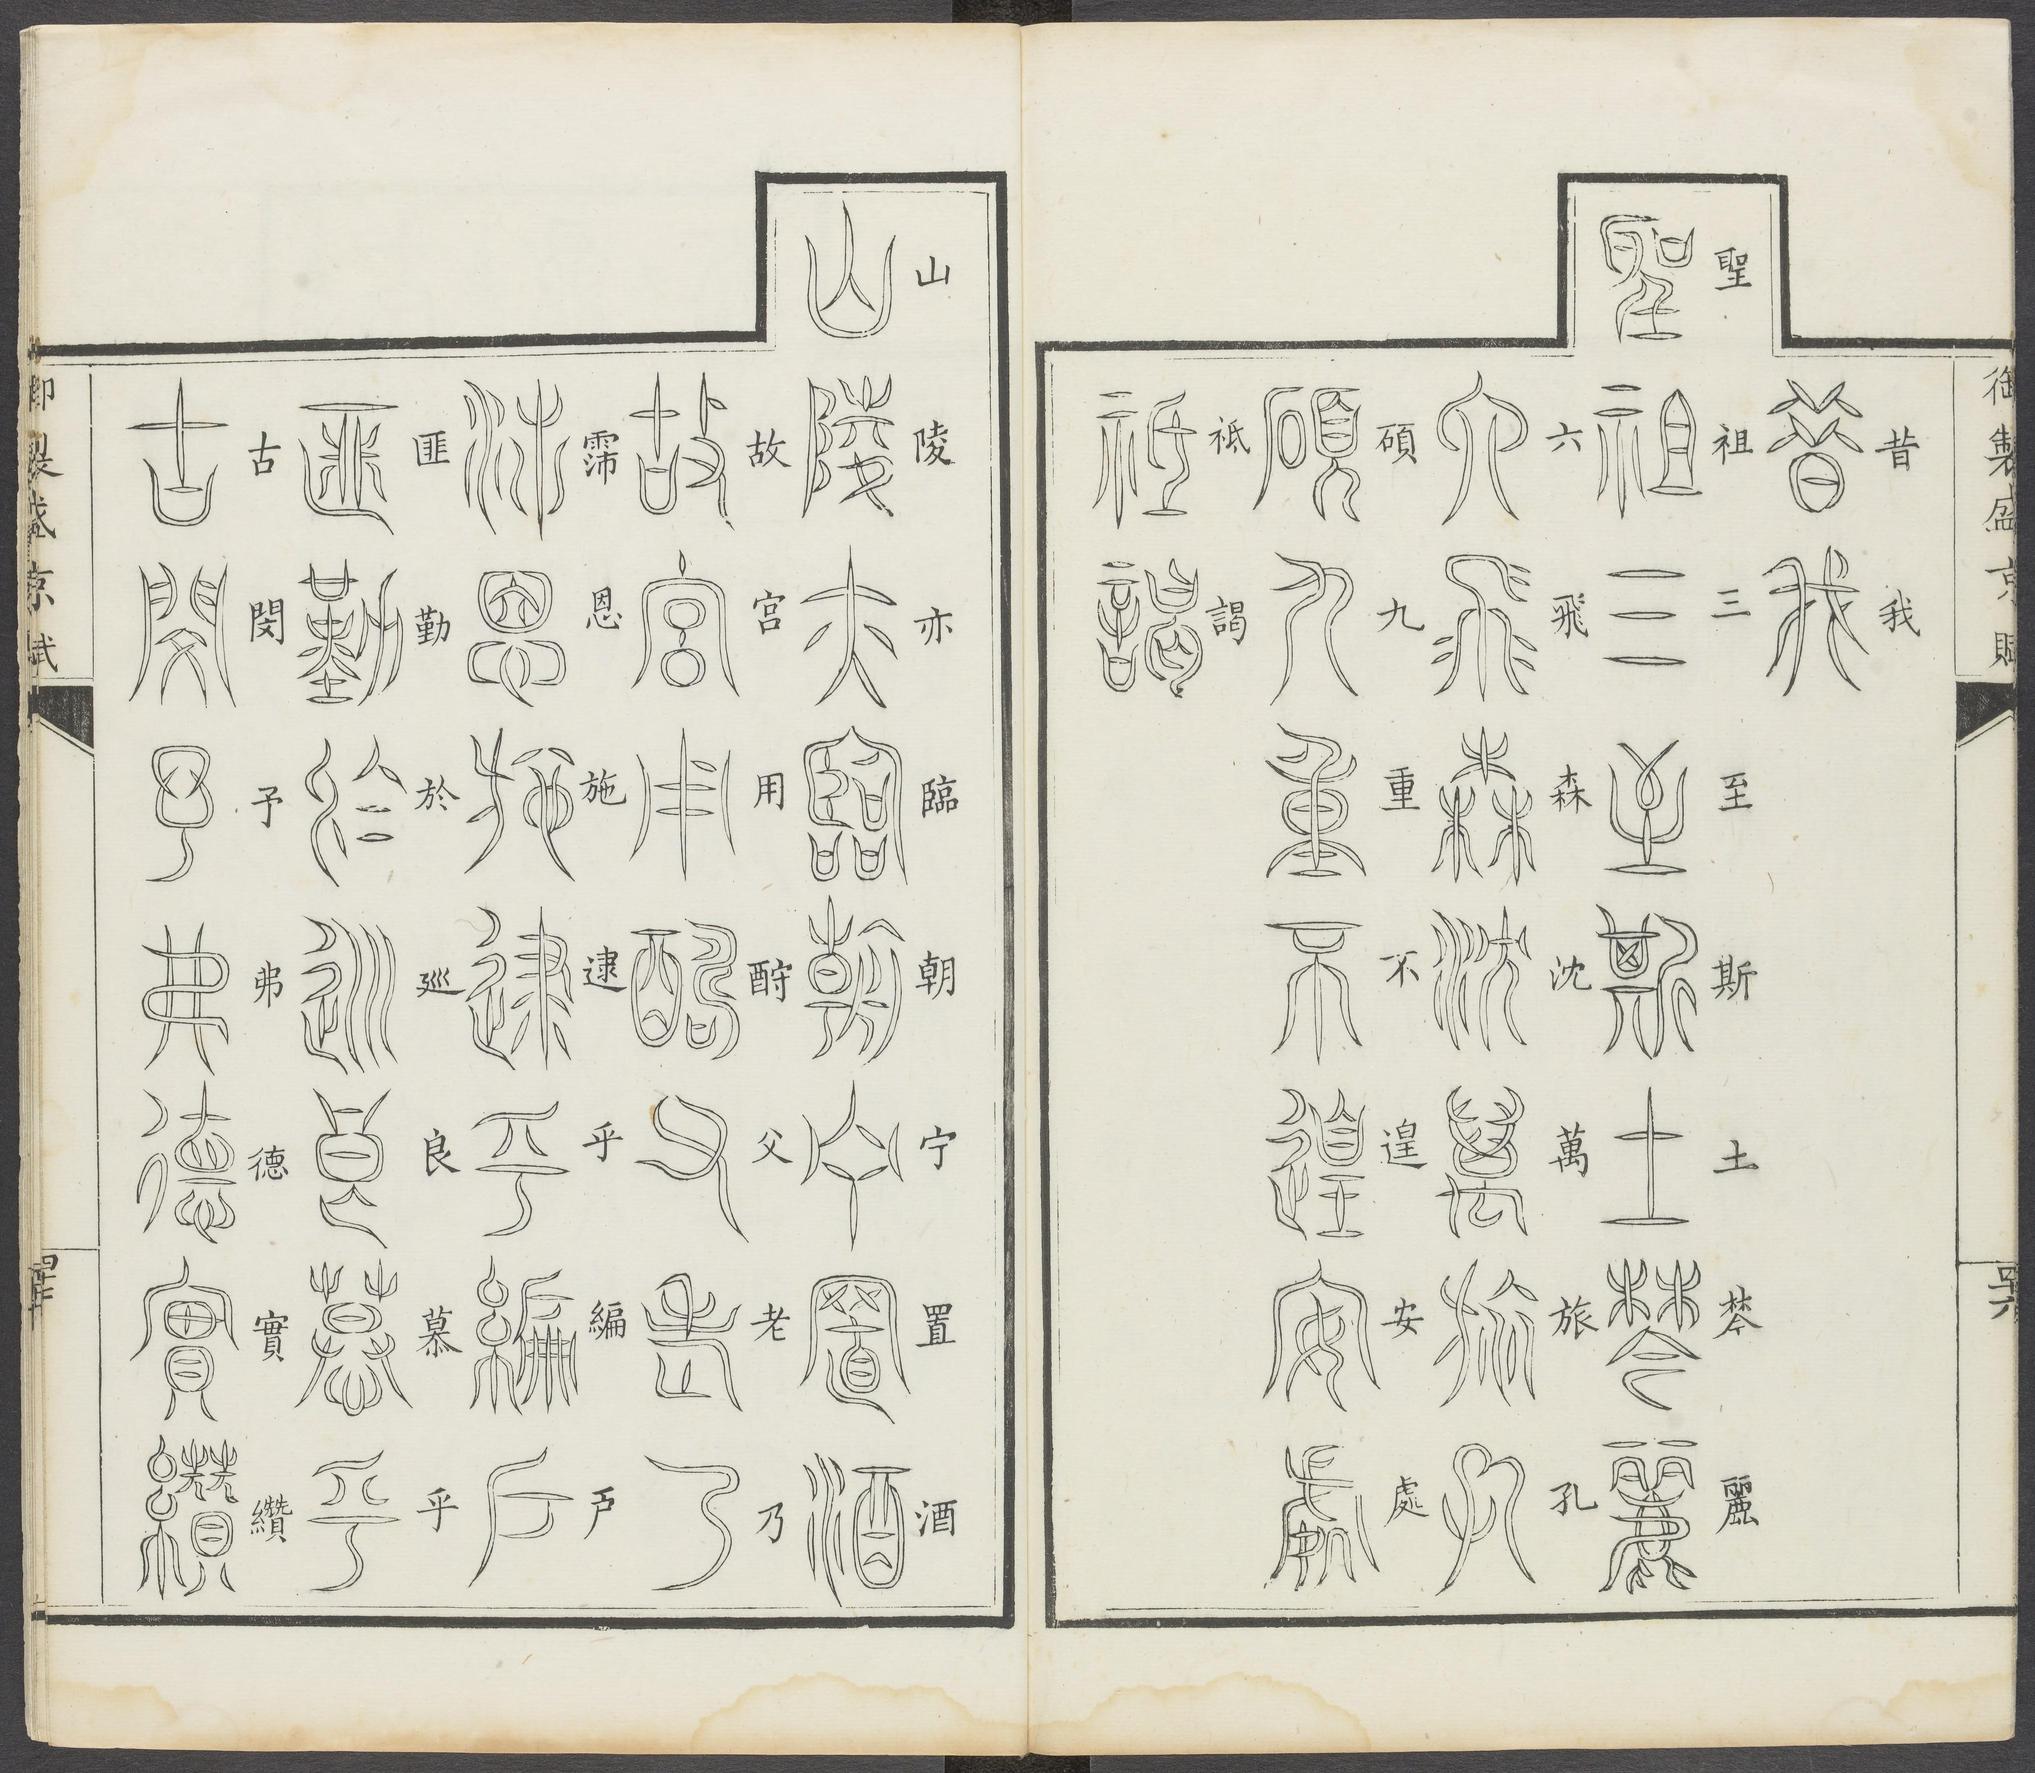 御製盛京賦
四十六
昔我
聖祖三至斯土棽麗
六飛森沈萬旅孔
碩九重不遑安處
祗謁
山陵亦臨朝宁置酒
故宮用酧父老乃
霈恩施逮乎編戶
匪勤於巡良慕乎
古閔予弗德實纘
御製盛京賦